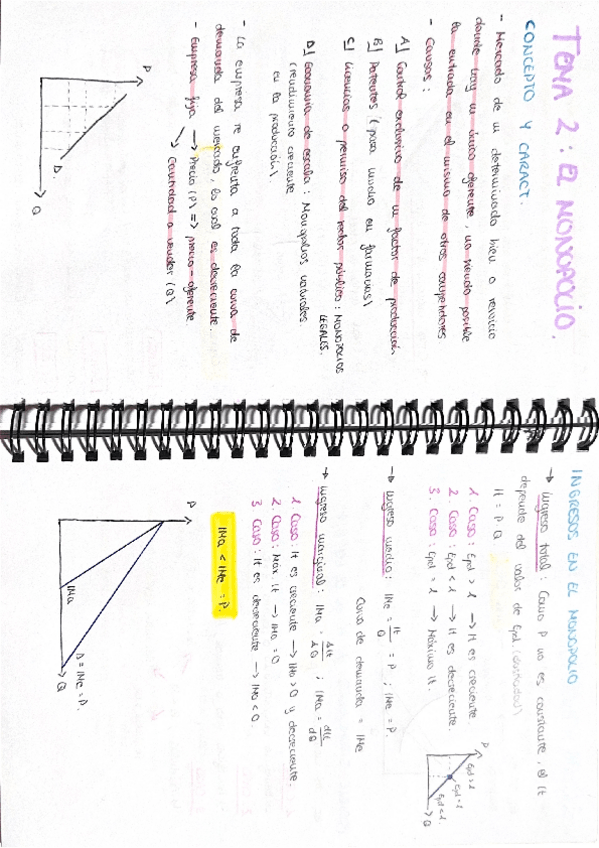 TEMA 2 : EL MONOPOLIO.
CONCEPTO Y CARACT.
- Mercado de un determinado bien o servicio
donde hay un único oferente, no siendo posible
la entrada en el mismo de otros competidores
- Causas :
A) Control exclusivo de un factor de producción
B) Patentes (pasa mucho en farmacias)
C) Licencias o permiso del sector público : MONOPOLIOS
LEGALES.
D) Economía de escala : Monopolios naturales
(rendimiento creciente
en la producción).
- La empresa se enfrenta a toda la curva de
demanda del mercado, la cual es decreciente.
- Empresa fija → Precio (P) => precio-oferente
→ Cantidad a vender (Q)
P
D.
Q
INGRESOS EN EL MONOPOLIO
→ Ingreso total : Como P no es constante, el It
depende del valor de Epd. (elasticidad)
It = P · Q
1. Caso : Epd > 1 → It es creciente.
2. Caso : Epd < 1 → It es decreciente.
3. Caso : Epd = 1 → Máximo It.
P
Epd > 1
Epd = 1
Epd < 1.
Q
→ Ingreso medio : IMe = It/Q = P ; IMe = P.
Curva de demanda = IMe
→ Ingreso marginal : IMa = ΔIt/ΔQ ; IMa = dIt/dQ
1. Caso : It es creciente → IMa > 0 y decreciente.
2. Caso : Máx. It → IMa = 0
3. Caso : It es decreciente → IMa < 0.
IMa < IMe = P.
P
IMa
D = IMe = P.
Q